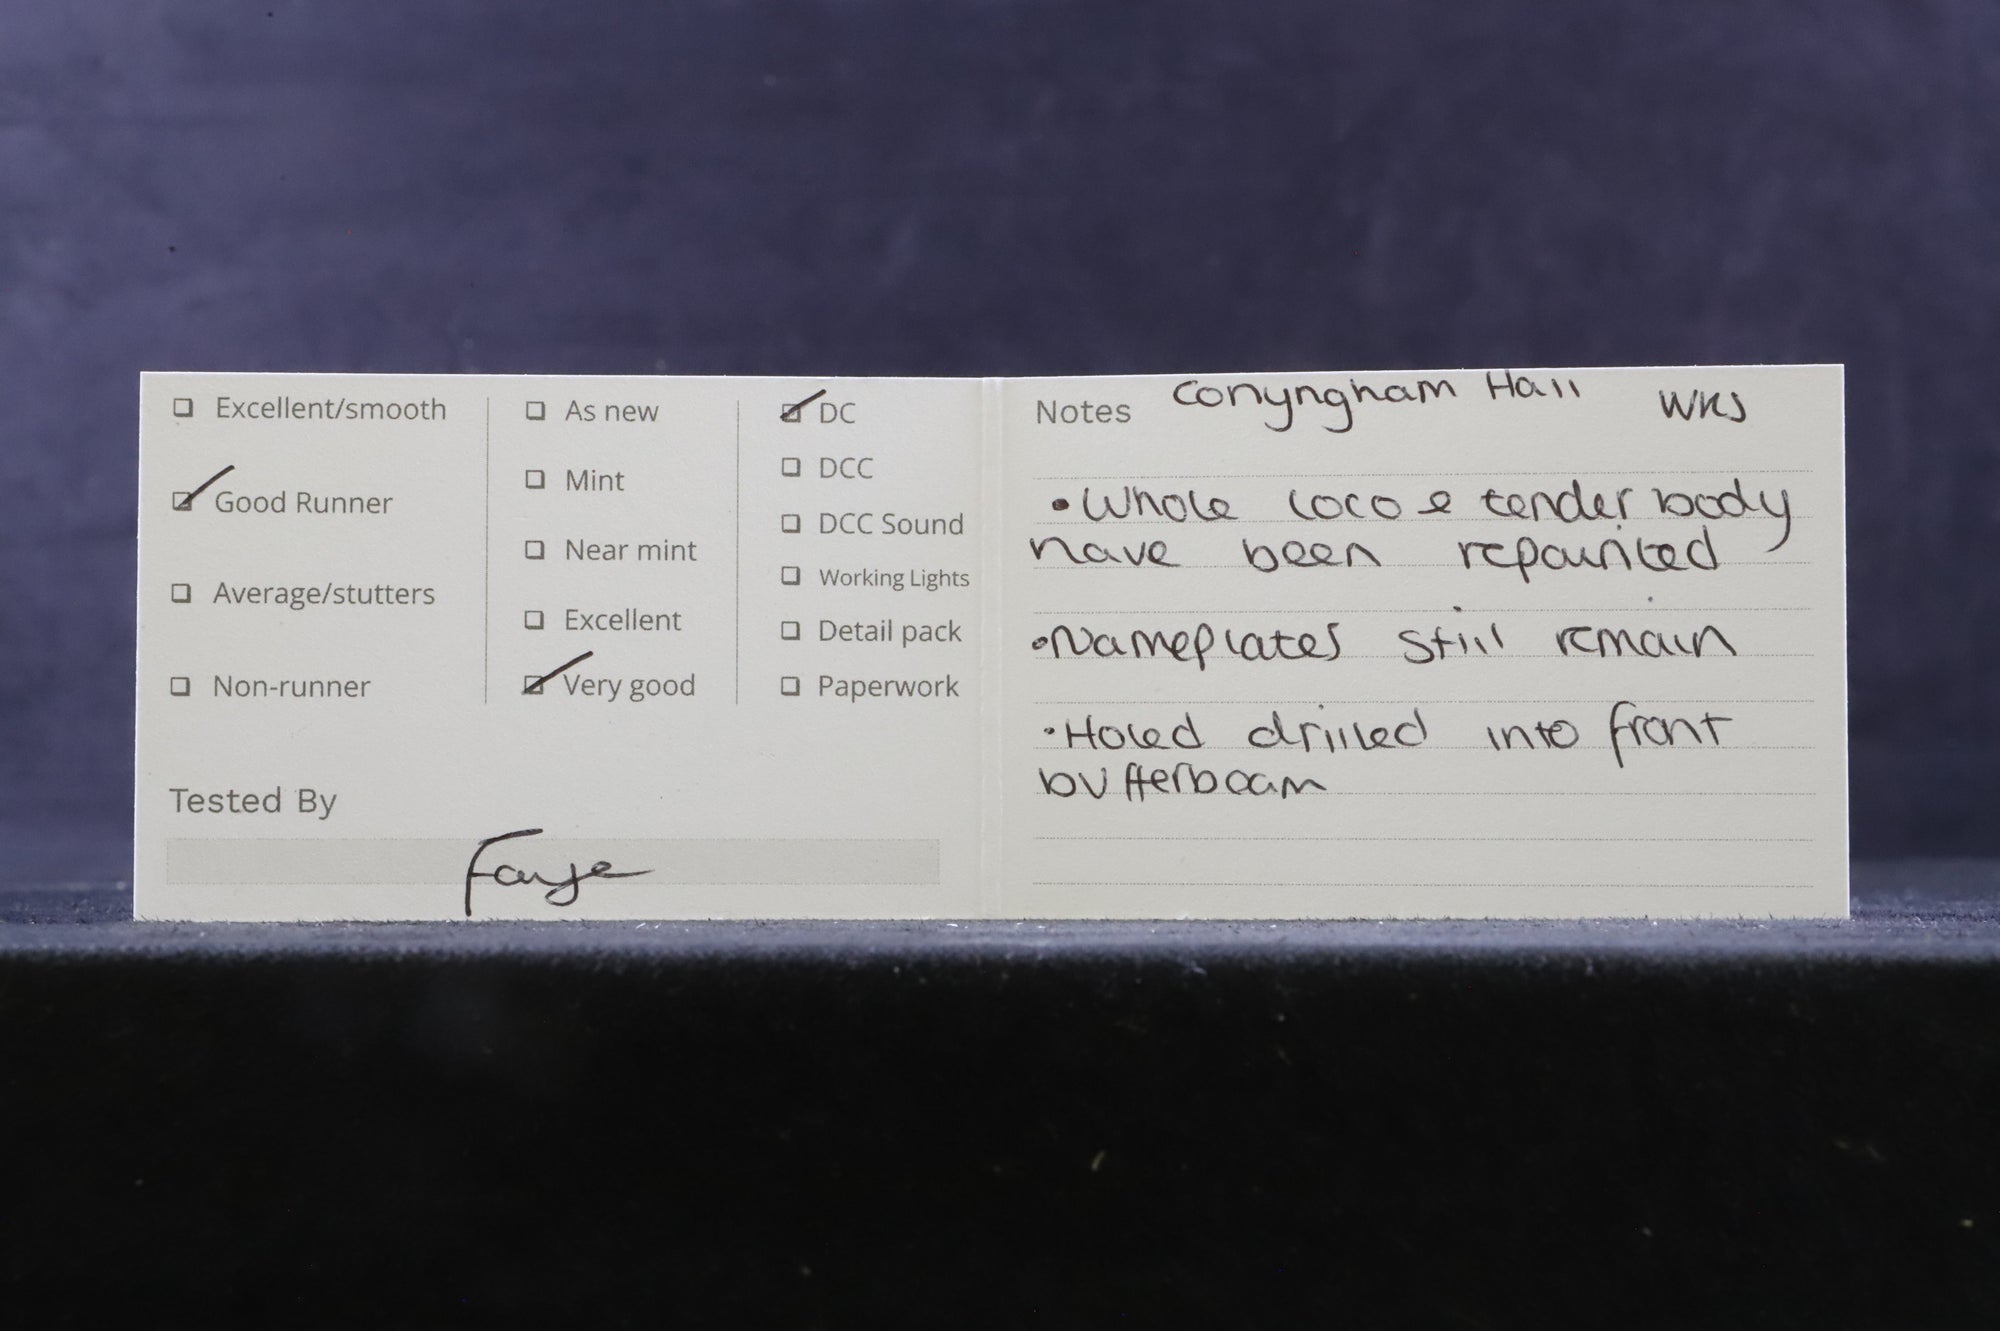 Excellent/smooth
Good Runner
Average/stutters
Non-runner
As new
Mint
Near mint
Excellent
Very good
DC
DCC
DCC Sound
Working Lights
Detail pack
Paperwork
Tested By
Faye
Notes Conyngham Hall WKS
•Whole loco & tender body
have been repainted
•Nameplates still remain
•Holed drilled into front
bufferbeam